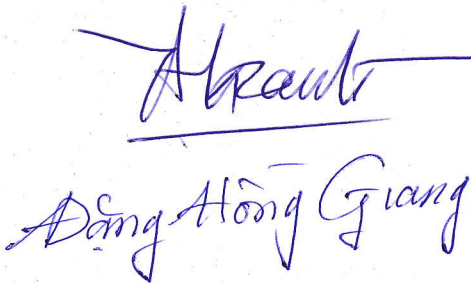 Đặng Hồng Giang